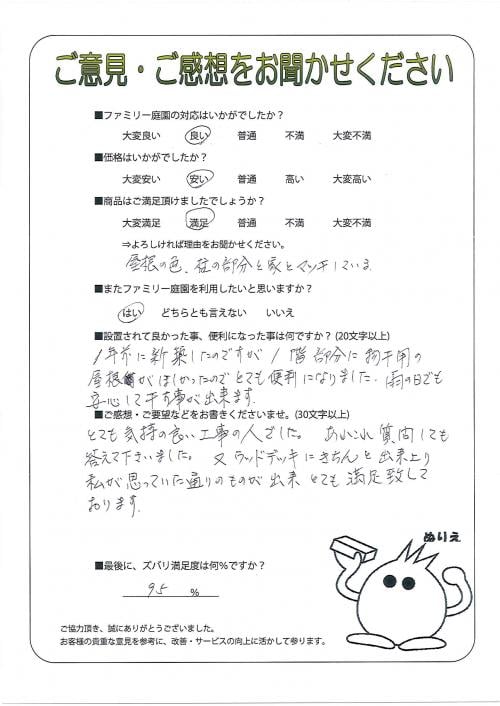 ご意見・ご感想をお聞かせください
■ファミリー庭園の対応はいかがでしたか？
大変良い 良い 普通 不満 大変不満
■価格はいかがでしたか？
大変安い 安い 普通 高い 大変高い
■商品はご満足頂けましたでしょうか？
大変満足 満足 普通 不満 大変不満
⇒よろしければ理由をお聞かせください。
屋根の色、柱の部分と家とマッチしていま
■またファミリー庭園を利用したいと思いますか？
はい どちらとも言えない いいえ
■設置されて良かった事、便利になった事は何ですか？(20文字以上)
1年前に新築したのですが1階部分に物干用の
屋根がほしかったのでとても便利になりました。雨の日でも
安心して干す事が出来ます。
■ご感想・ご要望などをお書きくださいませ。(30文字以上)
とても気持の良い工事の人でした。 あれこれ質問しても
答えて下さいました。又ウッドデッキにきちんと出来上り
私が思っていた通りのものが出来とても満足致して
おります。
ぬりえ
■最後に、ズバリ満足度は何%ですか？
95 %
ご協力頂き、誠にありがとうございました。
お客様の貴重な意見を参考に、改善・サービスの向上に活かして参ります。